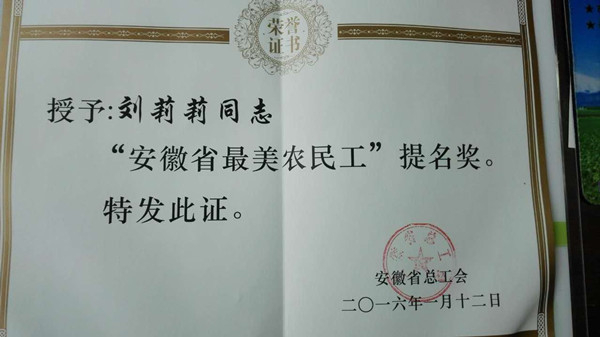 荣誉
证书
授予:刘莉莉同志
“安徽省最美农民工”提名奖。
特发此证。
安徽省总工会
二〇一六年一月十二日